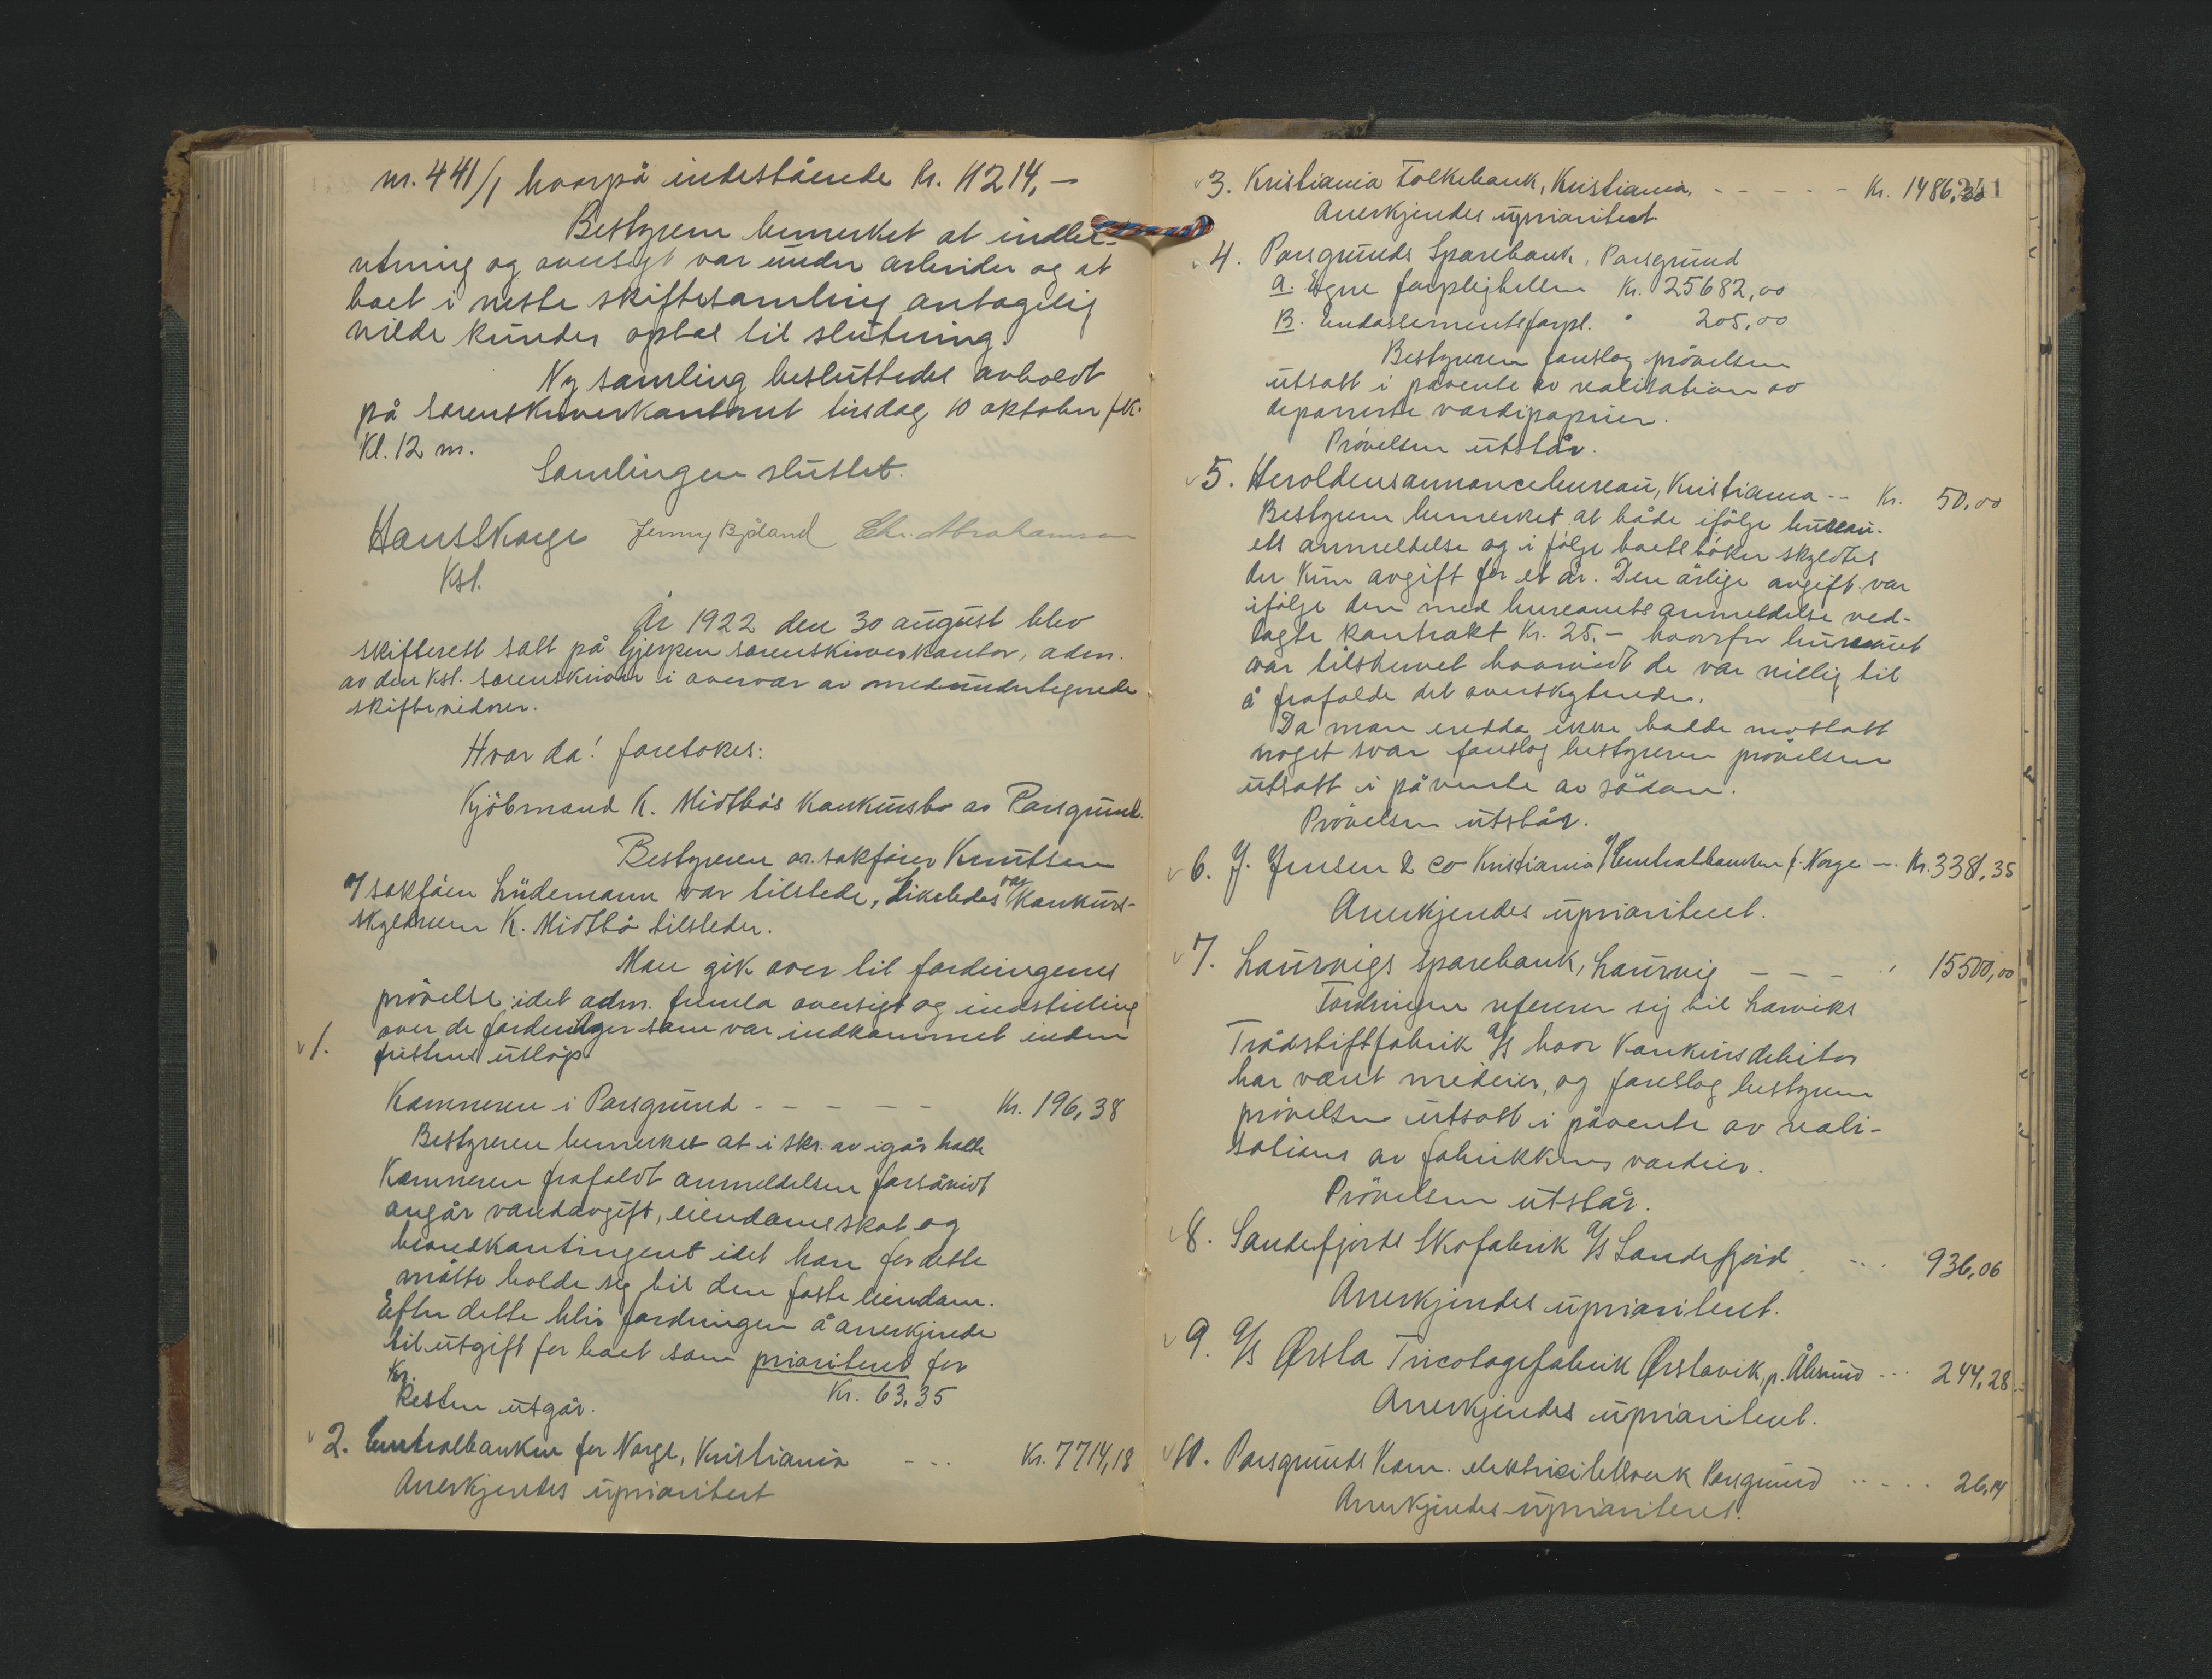 nr. 441/1 hvorpå indestående kr. 11214,-
Bestyreren bemerket at indbe-
retning og oversigt var under arbeide og at
boet i neste skiftesamling antagelig
vilde kundes optas til slutning.
Ny samling besluttedes avholdt
på sorenskriverkontoret tirsdag 10 oktober fk.
Kl. 12 m.
Samlingen sluttet.
Hans Skorge Jenny Bjåland Chr. Abrahamsen
Kst.
År 1922 den 30 august blev
skifterett satt på Gjerpen sorenskriverkontor, adm.
av den kst. sorenskriver i overvær av medundertegnede
skiftevidner.
Hvor da! foretokes:
Kjöbmand K. Midtbös konkursbo av Porsgrund.
Bestyreren or. sakförer Knutsen
v/ sakförer Lüdemann var tilstede, Likeledes var konkurs-
skyldneren K. Midtbö tilstede.
Man gik over til fordringenes
prövelse idet adm. fremla oversigt og indstilling
over de fordringer som var indkommet inden
fristens utlöp
1.
Kemneren i Porsgrund - - - - - Kr. 196,38
Bestyreren bemerket at i skr. av igår hadde
Kemneren frafaldt anmeldelsen forsåvidt
angår vandavgift, eiendomsskat og
brandkontingent idet han for dette
måtte holde sig til den faste eiendom.
Efter dette blir fordringen å anerkjende
til utgift for boet som prioritert for
Kr. Kr. 63,35
Resten utgår.
2. Centralbanken for Norge, Kristiania - - - Kr. 7714,18
Anerkjendes uprioritert
3. Kristiania Folkebank, Kristiania. - - - - - Kr. 1486,30
241
Anerkjendes uprioritert
4. Porsgrunds Sparebank, Porsgrund
a. Egne forpligtelser Kr. 25682,00
B. Endossementsforpl. " 205,00
Bestyreren foreslog prövelsen
utsatt i påvente av realisation av
deponerte værdipapirer.
Prövelsen utstår.
5. Heroldens annoncebureau, Kristiania -- Kr. 50,00
Bestyreren bemerket at både ifölge bureau-
ets anmeldelse og i fölge boets böker skyldtes
der kun avgift for et år. Den årlige avgift var
ifölge den med bureauets anmeldelse ved-
lagte kontrakt Kr. 25.- hvorfor bureauet
var tilskrevet hvorvidt de var villig til
å frafalde det overskytende.
Da man endda ikke hadde mottatt
noget svar foreslog bestyreren prövelsen
utsatt i påvente av sådan.
Prövelsen utstår.
6. J. Jensen & Co Kristiania v/ Centralbanken f. Norge - Kr. 3381,35
Anerkjendes uprioritert.
7. Laurvigs Sparebank, Laurvig - - - " 15500,00
Fordringen referer sig til Larviks
Trådstiftfabrik A/S hvor konkursdebitor
har været medeier, og foreslog bestyreren
prövelsen utsatt i påvente av reali-
sations av fabrikkens værdier.
Prövelsen utstår.
8. Sandefjords Skofabrik A/S Sandefjord. - - - 936,06
Anerkjendes uprioritert.
9. A/S Ørsta Tricotagefabrik Ørstavik, p. Ålesund --- 244,28
Anerkjendes uprioritert.
10. Porsgrunds Kom. elektricitetsverk Porsgrund - - - - - 26,14
Anerkjendes uprioritert.